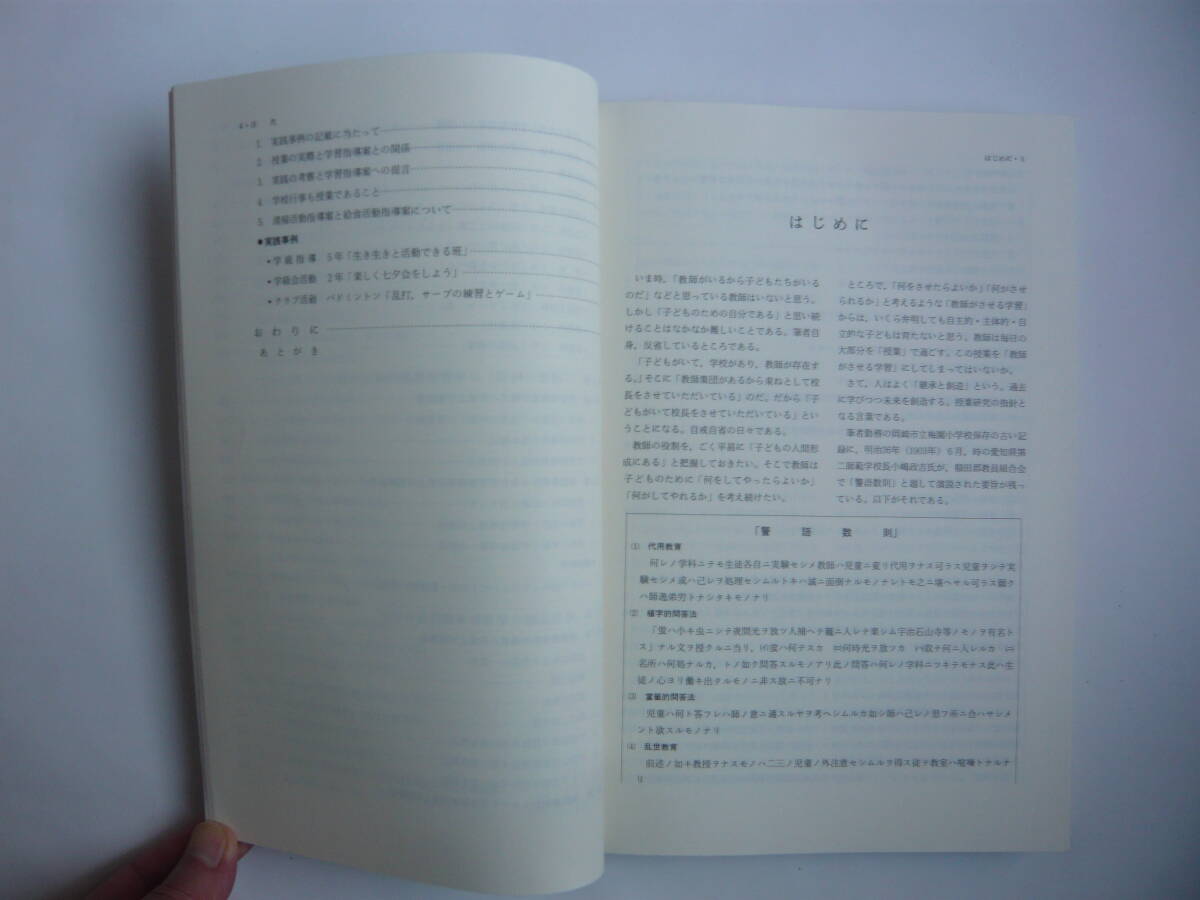 4・目 次
1. 実践事例の記載に当たって
2. 授業の実際と学習指導案との関係
3. 実践の考察と学習指導案への提言
4. 学校行事も授業であること
5. 清掃活動指導案と給食活動指導案について
●実践事例
・学級指導 5年「生き生きと活動できる班」
・学級会活動 2年「楽しく七夕会をしよう」
・クラブ活動 バドミントン「乱打，サーブの練習とゲーム」
おわりに
あとがき
はじめに・5
はじめに
いま時，「教師がいるから子どもたちがいる
のだ」などと思っている教師はいないと思う。
しかし「子どものための自分である」と思い続
けることはなかなか難しいことである。筆者自
身，反省しているところである。
「子どもがいて，学校があり，教師が存在す
る。」そこに「教師集団があるから束ねとして校
長をさせていただいている」のだ。だから「子
どもがいて校長をさせていただいている」とい
うことになる。自戒自省の日々である。
教師の役割を，ごく平易に「子どもの人間形
成にある」と把握しておきたい。そこで教師は
子どものために「何をしてやったらよいか」
「何がしてやれるか」を考え続けたい。
ところで，「何をさせたらよいか」「何がさせ
られるか」と考えるような「教師がさせる学習」
からは，いくら弁明しても自主的・主体的・自
立的な子どもは育たないと思う。教師は毎日の
大部分を「授業」で過ごす。この授業を「教師
がさせる学習」にしてしまってはいないか。
さて，人はよく「継承と創造」という。過去
に学びつつ未来を創造する。授業研究の指針と
なる言葉である。
筆者勤務の岡崎市立梅園小学校保存の古い記
録に，明治36年（1903年）6月，時の愛知県第
二師範学校長小嶋政吉氏が，額田郡教員組合会
で「警語数則」と題して演説された要旨が残っ
ている。以下がそれである。
「警 語 数 則」
(1) 代用教育
何レノ学科ニテモ生徒各自ニ実験セシメ教師ハ児童ニ重リ代用ヲナス可ラス児童ヲシテ実
験セシメ或ハ己レヲ処理セシムルトキハ誠ニ面倒ナルモノナレトモ之ニ堪ヘサル可ラス師ク
ハ師逸弟労トナシタキモノナリ
(2) 植字的問答法
「蛍ハ小キ虫ニシテ夜間光ヲ放ツ人捕ヘテ籠ニ入レテ楽シム宇治石山寺等ノモノヲ有名ト
ス」ナル文ヲ授クルニ当リ，(イ)蛍ハ何テスカ (ロ)何時光ヲ放ツカ (ハ)取テ何ニ入レルカ (ニ)
名所ハ何処ナルカ，トノ如ク問答スルモノアリ此ノ問答ハ何レノ学科ニツキテモナス此ハ生
徒ノ心ヨリ働キ出タルモノニ非ス故ニ不可ナリ
(3) 富籤的問答法
児童ハ何ト答フレハ師ノ意ニ適スルヤヲ考ヘシムルカ如シ師ハ己レノ思フ所ニ合ハサシメ
ント欲スルモノナリ
(4) 乱世教育
前述ノ如キ教授ヲナスモノハ二三ノ児童ノ外注意セシムルヲ得ス徒ヲ教室ハ喧噪トナルナ
リ